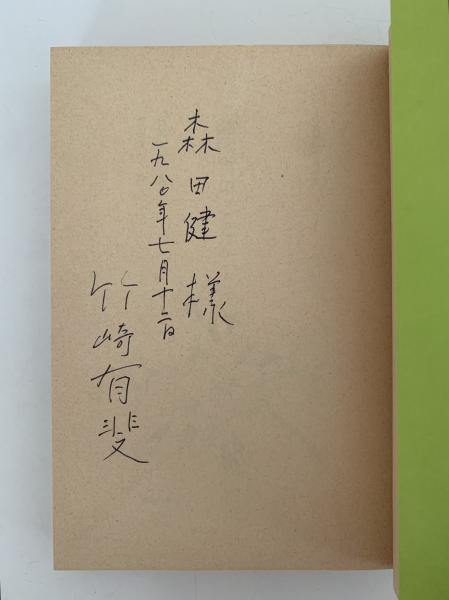 森田健様
一九八〇年七月十二日
竹崎有斐